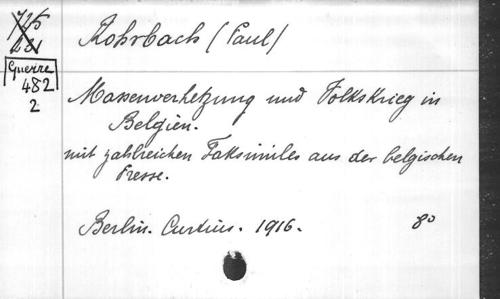 Rohrbach (Paul)
Guerre
482
2
Massenverhetzung und Volkskrieg in
Belgien.
mit zahlreichen Faksimiles aus der belgischen
Presse.
Berlin. Curtius. 1916. 8º